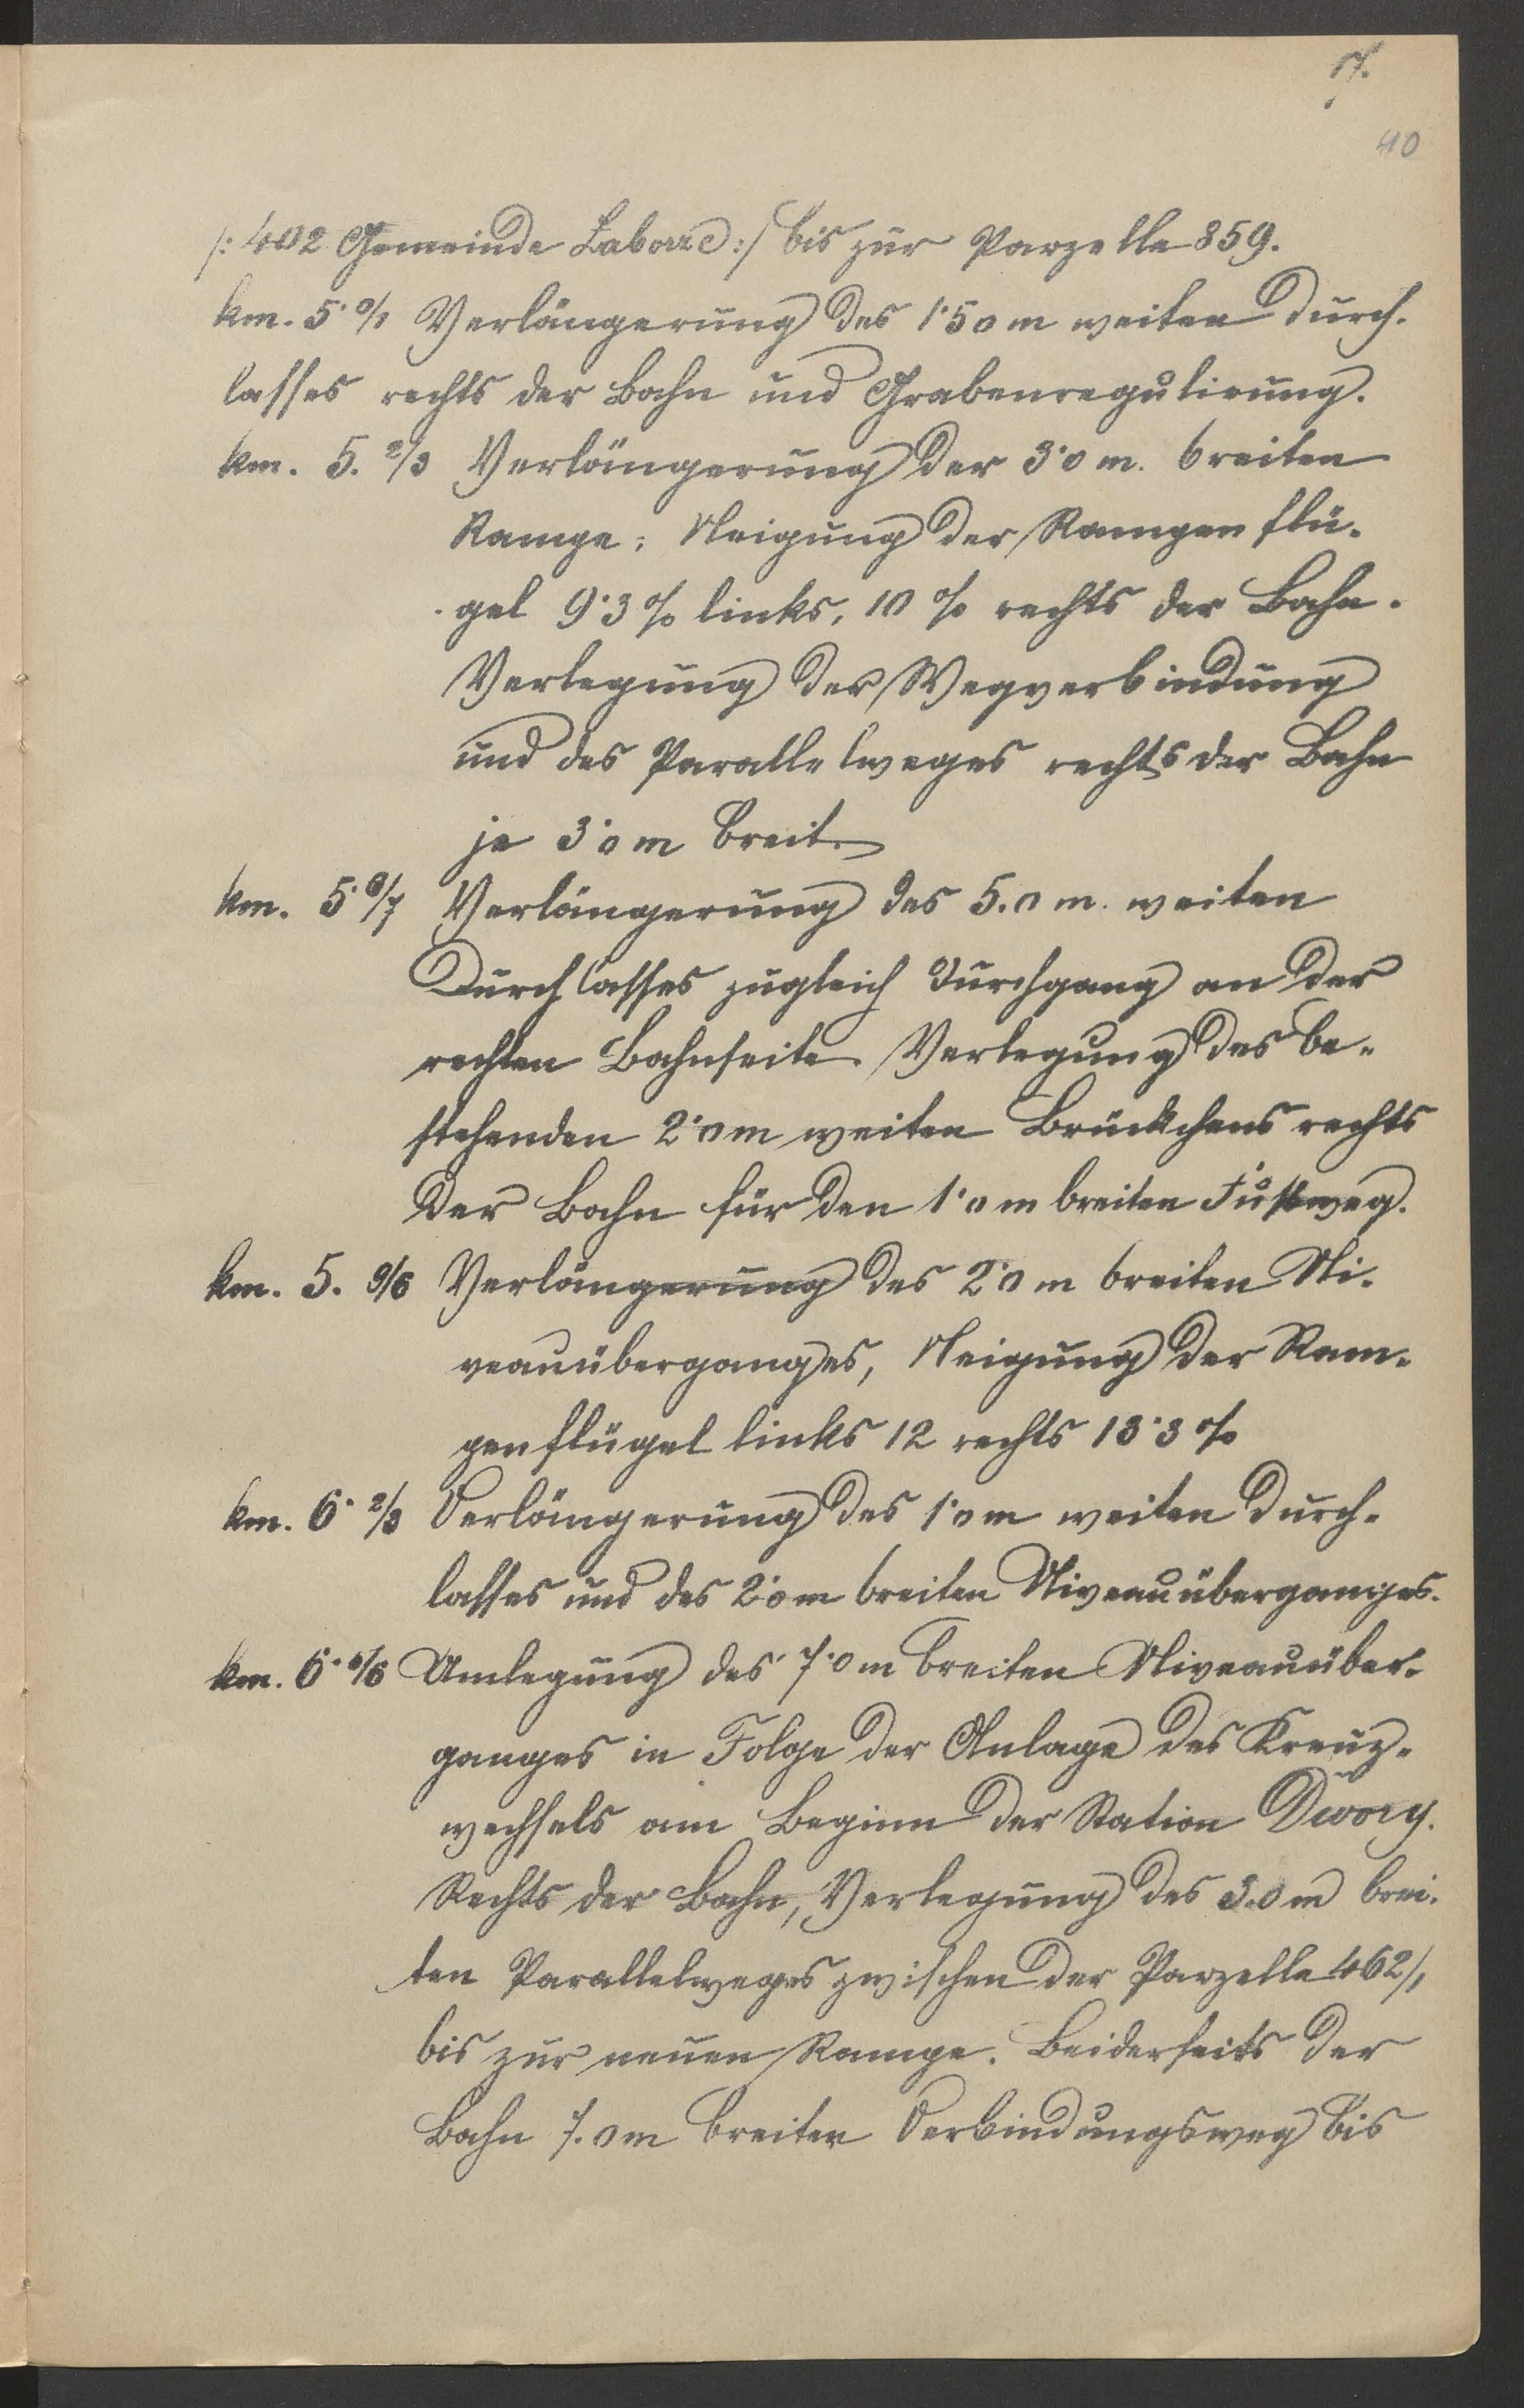 17.
40
/: 402 Gemeinde Zaborze :/ bis zur Parzelle 859.
km. 5· 0/1 Verlängerung des 1·50 m weiten Durch-
lasses rechts der Bahn und Grabenregulierung.
km. 5. 2/3 Verlängerung der 3·0 m. breiten
Rampe; Neigung der Rampenflü-
gel 9·3 % links, 10 % rechts der Bahn.
Verlegung der Wegverbindung
und des Parallelweges rechts der Bahn
je 3·0 m breit.
km. 5· 6/7 Verlängerung des 5.0 m. weiten
Durchlasses zugleich Durchgang an der
rechten Bahnseite. Verlegung des be-
stehenden 2·0 m weiten Brückchens rechts
der Bahn für den 1·0 m breiten Fußweg.
km. 5. 9/6 Verlängerung des 2·0 m breiten Ni-
veauüberganges, Neigung der Ram-
penflügel links 12 rechts 13·3 %
km. 6· 2/3 Verlängerung des 1·0 m weiten Durch-
lasses und des 2·0 m breiten Niveauüberganges.
km. 6· /6 Umlegung des 7·0 m breiten Niveauüber-
ganges in Folge der Anlage des Kreuz-
wechsels am Beginn der Station Dwory.
Rechts der Bahn, Verlegung des 3.0 m brei-
ten Parallelweges zwischen der Parzelle 462/1
bis zur neuen Rampe. Beiderseits der
Bahn 7.0 m breiter Verbindungsweg bis